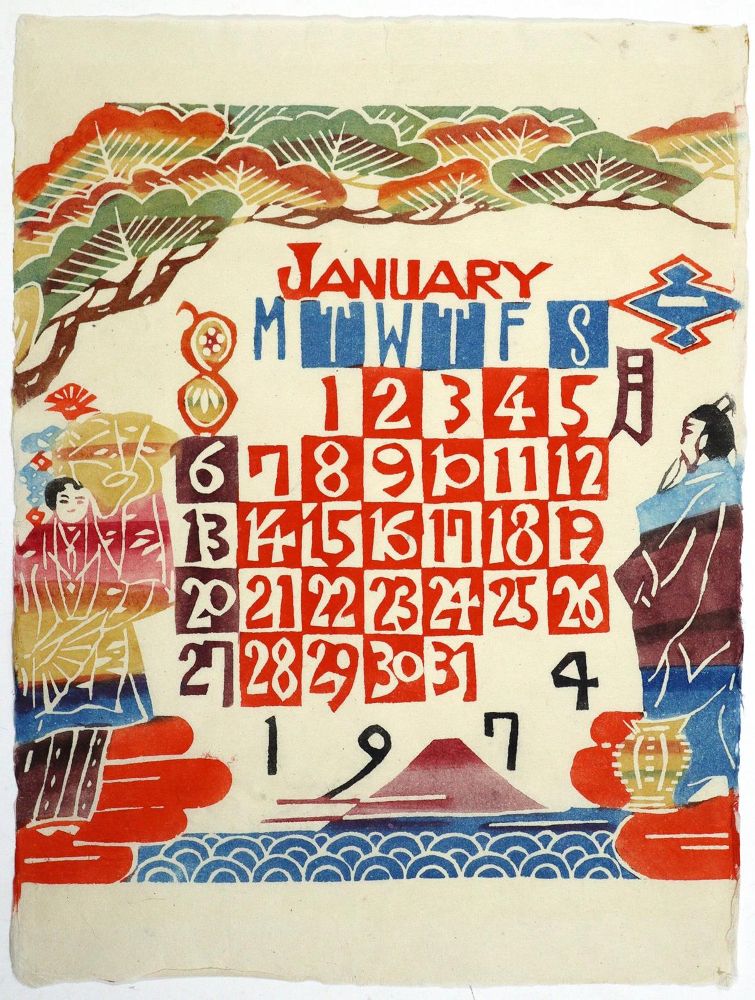 JANUARY
M T W T F S
一
月
1 2 3 4 5
6 7 8 9 10 11 12
13 14 15 16 17 18 19
20 21 22 23 24 25 26
27 28 29 30 31
1974